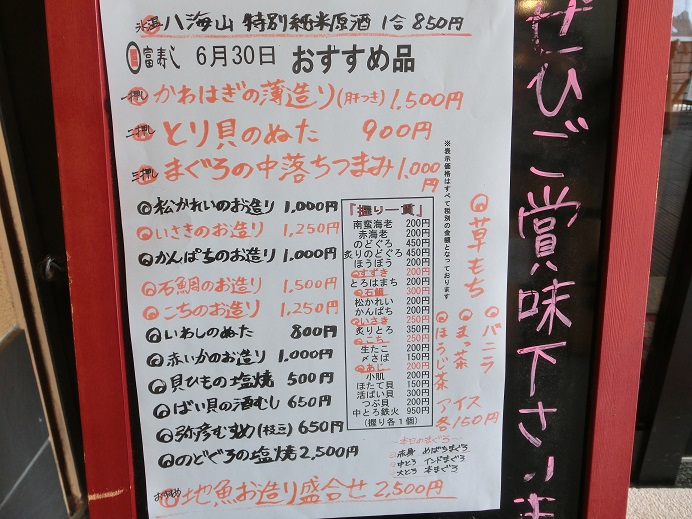 氷温 八海山 特別純米原酒 1合 850円
富寿し 6月30日 おすすめ品
一押し かわはぎの薄造り(肝つき) 1,500円
二押し とり貝のぬた 900円
三押し まぐろの中落ちつまみ 1,000円
松かれいのお造り 1,000円
いさきのお造り 1,250円
かんぱちのお造り 1,000円
石鯛のお造り 1,500円
こちのお造り 1,250円
いわしのぬた 800円
赤いかのお造り 1,000円
貝ひもの塩焼 500円
ばい貝の酒むし 650円
弥彦むすめ(枝豆) 650円
のどぐろの塩焼 2,500円
おすすめ 地魚お造り盛合せ 2,500円
『握り一貫』
南蛮海老 200円
赤海老 200円
のどぐろ 450円
炙りのどぐろ 450円
ほうぼう 200円
すずき 200円
とろはまち 200円
石鯛 300円
松かれい 200円
かんぱち 200円
いさき 250円
炙りとろ 350円
こち 250円
生たこ 200円
〆さば 150円
あじ 200円
小肌 200円
ほたて貝 150円
活ばい貝 300円
つぶ貝 200円
中とろ鉄火 950円
(握り各1個)
※表示価格はすべて税別の金額となっております
草もち
バニラ
まっ茶
ほうじ茶
アイス
各150円
本日のまぐろ
赤身 めばちまぐろ
中とろ インドまぐろ
大とろ 本まぐろ
ぜひご賞味下さいま